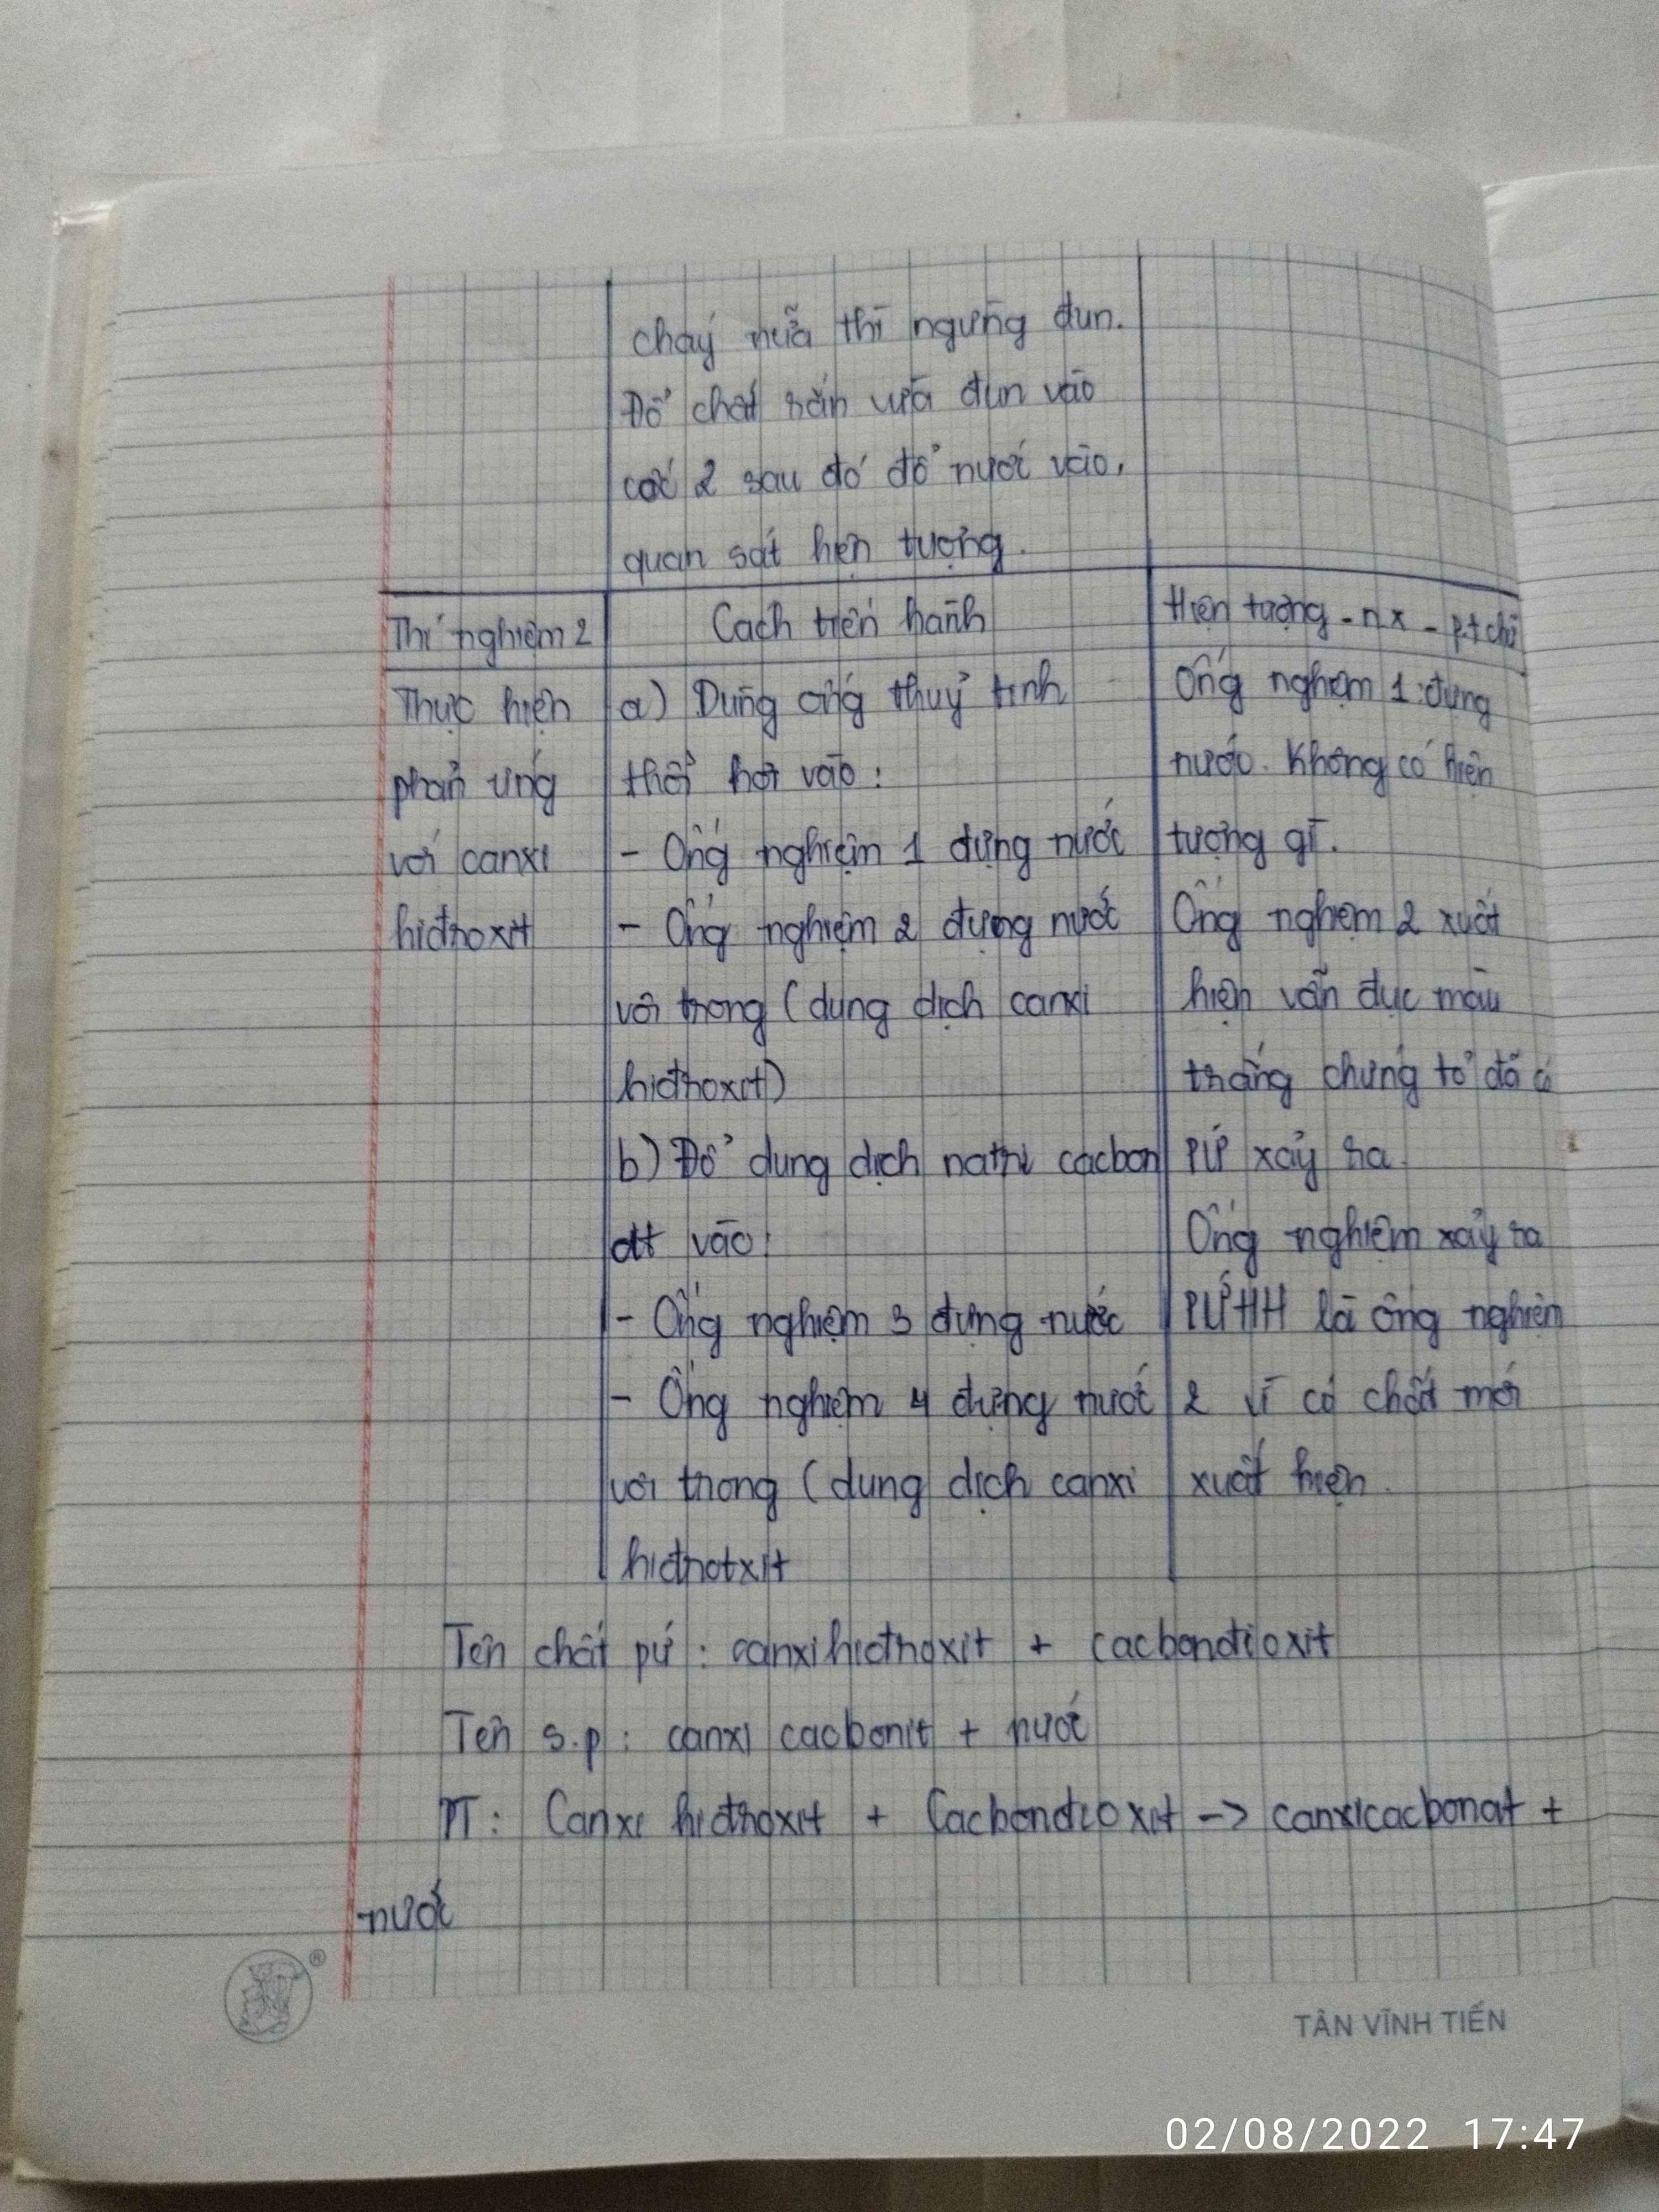 cháy nữa thì ngừng đun.
Đổ chất rắn vừa đun vào
cốc 2 sau đó đổ nước vào,
quan sát hiện tượng.
Thí nghiệm 2
Cách tiến hành
Hiện tượng - nx - p.t chữ
Thực hiện
phản ứng
với canxi
hiđroxit
a) Dùng ống thuỷ tinh
thổi hơi vào:
- Ống nghiệm 1 đựng nước
- Ống nghiệm 2 đựng nước
vôi trong (dung dịch canxi
hiđroxit)
b) Đổ dung dịch natri cacbon
at vào:
- Ống nghiệm 3 đựng nước
- Ống nghiệm 4 đựng nước
vôi trong (dung dịch canxi
hiđrotxit
Ống nghiệm 1: đựng
nước. Không có hiện
tượng gì.
Ống nghiệm 2 xuất
hiện vẩn đục màu
trắng chứng tỏ đã có
PƯ xảy ra.
Ống nghiệm xảy ra
PƯHH là ống nghiệm
2 vì có chất mới
xuất hiện.
Tên chất pứ: canxihiđroxit + cacbonđioxit
Tên s.p: canxi cacbonit + nước
PT: Canxi hiđroxit + Cacbonđioxit -> canxicacbonat +
nước
®
TÂN VĨNH TIẾN
02/08/2022 17:47